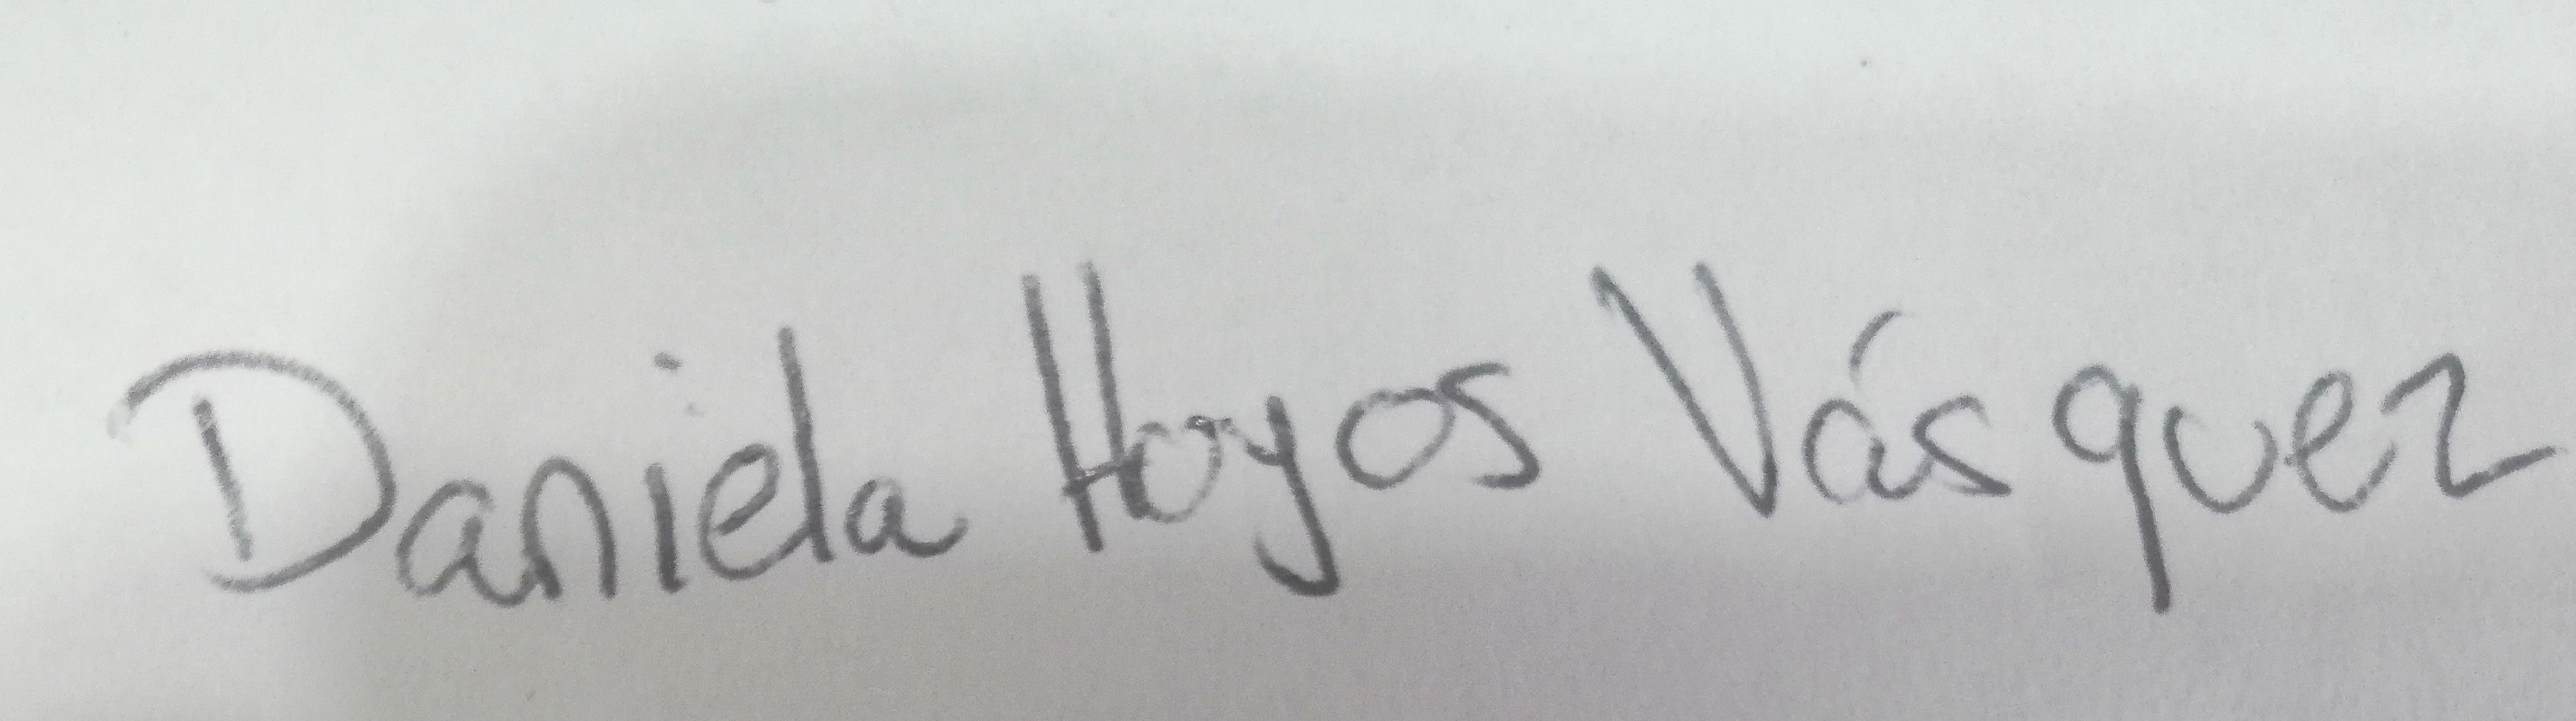 Daniela Hoyos Vásquez